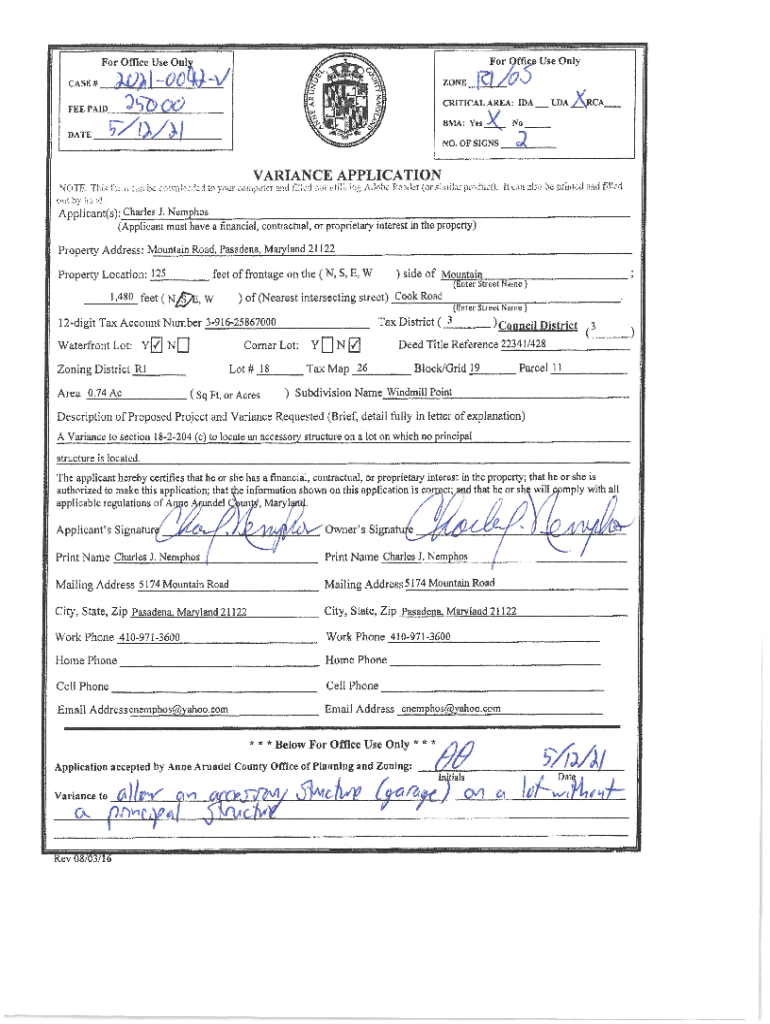 For Office Use Only
CASE # 2021-0042-V
FEE PAID 250 00
DATE 5/12/21
ANNE ARUNDEL COUNTY MARYLAND
For Office Use Only
ZONE R1/OS
CRITICAL AREA: IDA ___ LDA X RCA ___
BMA: Yes X No ____
NO. OF SIGNS 2
VARIANCE APPLICATION
NOTE: This form can be downloaded to your computer and filled out utilizing Adobe Reader (or similar product). It can also be printed and filled
out by hand.
Applicant(s): Charles J. Nemphos
(Applicant must have a financial, contractual, or proprietary interest in the property)
Property Address: Mountain Road, Pasadena, Maryland 21122
Property Location: 125 feet of frontage on the ( N, S, E, W ) side of Mountain ;
(Enter Street Name )
1,480 feet ( N, S, E, W ) of (Nearest intersecting street) Cook Road .
(Enter Street Name )
12-digit Tax Account Number 3-916-25867000 Tax District ( 3 ) Council District ( 3 )
Waterfront Lot: Y ☑ N ☐ Corner Lot: Y ☐ N ☑ Deed Title Reference 22341/428
Zoning District R1 Lot # 18 Tax Map 26 Block/Grid 19 Parcel 11
Area 0.74 Ac ( Sq Ft. or Acres ) Subdivision Name Windmill Point
Description of Proposed Project and Variance Requested (Brief, detail fully in letter of explanation)
A Variance to section 18-2-204 (c) to locate an accessory structure on a lot on which no principal
structure is located.
The applicant hereby certifies that he or she has a financial, contractual, or proprietary interest in the property; that he or she is
authorized to make this application; that the information shown on this application is correct; and that he or she will comply with all
applicable regulations of Anne Arundel County, Maryland.
Applicant's Signature Chas J. Nemphos Owner's Signature Charles J. Nemphos
Print Name Charles J. Nemphos Print Name Charles J. Nemphos
Mailing Address 5174 Mountain Road Mailing Address 5174 Mountain Road
City, State, Zip Pasadena, Maryland 21122 City, State, Zip Pasadena, Maryland 21122
Work Phone 410-971-3600 Work Phone 410-971-3600
Home Phone Home Phone
Cell Phone Cell Phone
Email Address cnemphos@yahoo.com Email Address cnemphos@yahoo.com
* * * Below For Office Use Only * * *
Application accepted by Anne Arundel County Office of Planning and Zoning: 5/12/21
Initials Date
Variance to allow an accessory structure (garage) on a lot without
a principal structure
Rev 08/03/16